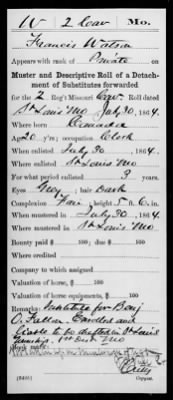 W 2 Cav Mo.
Francis Watson
Appears with rank of Private
Muster and Descriptive Roll of a Detach-
ment of Substitutes forwarded
for the 2 Reg't Missouri Cav. Roll dated
St Louis Mo July 30, 1864.
Where born Canada
Age 20 y'rs; occupation Clerk
When enlisted July 30, 1864.
Where enlisted St Louis Mo
For what period enlisted 3 years.
Eyes Grey; hair Dark
Complexion Fair; height 5 ft. 6 in.
When mustered in July 30, 1864.
Where mustered in St Louis Mo
Bounty paid $ 100; due $ 100
Where credited
Company to which assigned
Valuation of horse, $ 100
Valuation of horse equipments, $ 100
Remarks: Substitute for Benj
O. Enrolled and
liable to be drafted in St Louis
1st Dist Mo
Book mark:
Copyist.